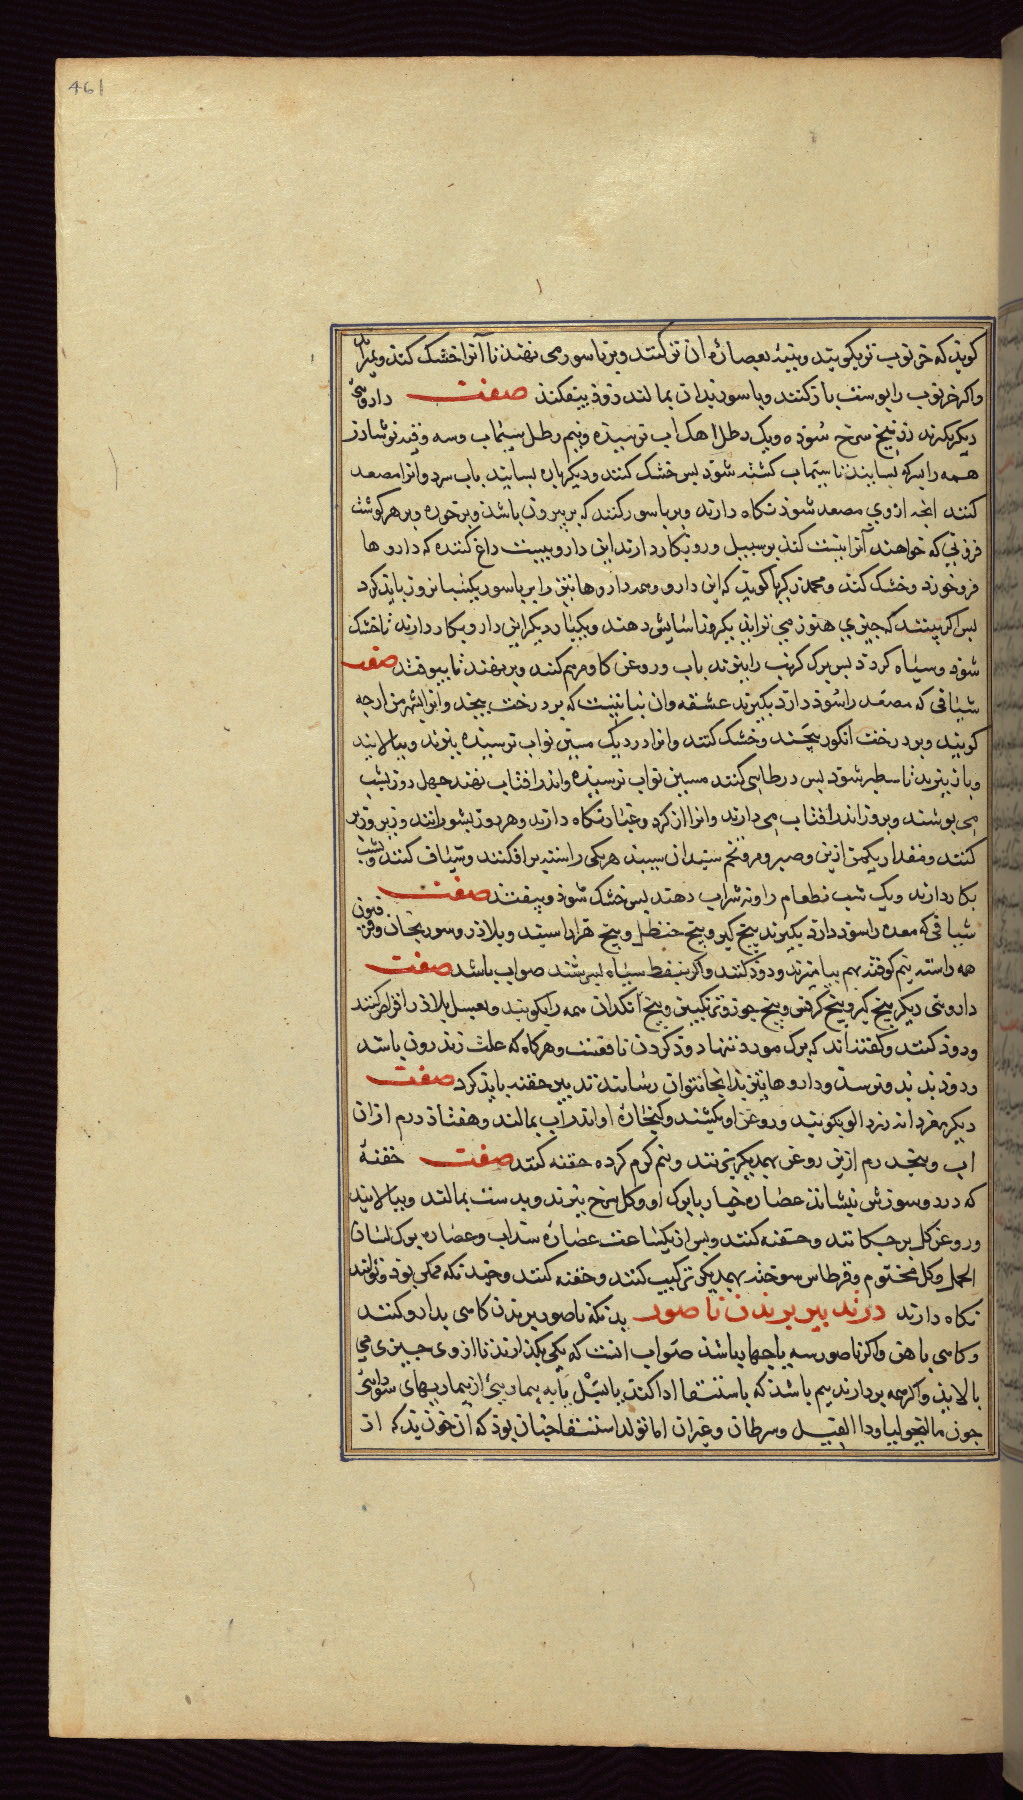 461
کویند که خرنوب تر بکوبند وپنبه بعصاره ان تر کنند وبر باسور می نهند تا آنرا خشک کند وبمیراند
واکر خرنوب را پوست باز کنند وباسور بدان بمالند زوذ بیفکند صفت داروئی
دیکر بکیرند زرنیخ سرخ شوذه ویک رطل اهک اب نرسیده ونیم رطل سیماب وسه وقیه نوشاذر
همه را بسرکه بسایند تا سیماب کشته شوذ پس خشک کنند ودیکر باره بسایند باب سرد وانرا مصعد
کنند انجه ازوی مصعد شوذ نکاه دارند وبر باسور کنند که بر بیرون باشذ وبر خوره وبر هر کوشت
فزونی که خواهند آنرا نیست کند بر سبیل وروزکار دارند این دارو بیست داغ کننده که دارو ها
فروخورد وخشک کند ومحمد زکریا کوید که این دارو وهمه داروهاء تیز را بر باسور یکشبانروز باید کرد
پس اکر بینند که جیزی هنوز می تراید یکروز اسایش دهند ویکبار دیکر این دارو بکار دارند تا خشک
شوذ وسیاه کردد پس برک کرنب را بپزند باب وروغن کاو مرهم کنند وبر نهند تا بیوفتد صفت
شیافی که مقعد را سوذ دارد بکیرند عشقه وان نباتیست که بر درخت بیجد وانرا
کویند وبر درخت انکور بیجند وخشک کنند وانرا در دیک مسین نو اب نرسیده بپزند وبپالایند
وباز بپزند تا سطبر شوذ پس در طاسی کنند مسین نو اب نرسیده واندر افتاب نهند جهل روز بشب
می پوشند وبروز اندر افتاب می دارند وانرا از کرد وغبار نکاه دارند وهر روز بشورانند وزیر وزبر
کنند ومقدار یکمن ازین وصبر ومر وتخم سپندان سپید هر یکی راستیر برافکنند وشیاف کنند وبشب
بکار دارند ویک شب نطعام را ونه شراب دهند پس خشک شوذ وبیفتد صفت
شیافی که معده را سوذ دارد بکیرند بیخ کبر وبیخ حنظل وبیخ هزار اسپند وبلاذر وسورنجان وفرفیون
همه راستا راست نیم کوفته بهم بیامیزند ودوذ کنند واکر بنفط سیاه بسرشند صواب باشد صفت
داروئی دیکر بیخ کبر وبیخ کرفس وبیخ جوز وترنکبین وبیخ انکدان همه را بکوبند وبعسل بلاذر اقراص کنند
ودوذ کنند وکفته اند که برک مورد تنها دوذ کردن نافعست وهرکاه که علت زندرون باشد
ودوذ بذ بذو نرسد وداروهاء تیز بذانجا نتوان رسانیدن تدبیر حقنه باید کرد صفت
دیکر مغز دانه زردالو بکوبند وروغن او بکشند وکنجاره او اندر اب بمالند وهفتاذ درم ازان
اب وپنج درم ازین روغن بهمدیکر بزنند ونیم کرم کرده حقنه کنند صفت حقنهٔ
که درد وسوزش نیشاند عصاره خیار با برک او وکل سرخ بپزند وبدست بمالند وبپالایند
وروغن کل برجکانند وحقنه کنند وپس از یکساعت عصاره سذاب وعصاره برک لسان
الحمل وکل مختوم وقرطاس سوخته بهمدیکر ترکیب کنند وحقنه کنند وجندانکه ممکن بوذ وتوانند
نکاه دارند در تدبیر بریدن ناصور بدانکه ناصور بریدن کاهی بدارو کنند
وکاهی باهن واکر ناصور سه یا جهار باشذ صواب انست که یکی بکذارند تا ازوی جیزی می
پالایذ واکر همه بردارند بیم باشذ که باستسقا ادا کند یا بسل یا به بیماریئ از بیماریهای سودائی
جون مالیخولیا وداء الفیل وسرطان وغیران اما تولد استسقا جنان بوذ که ان خون بد که از